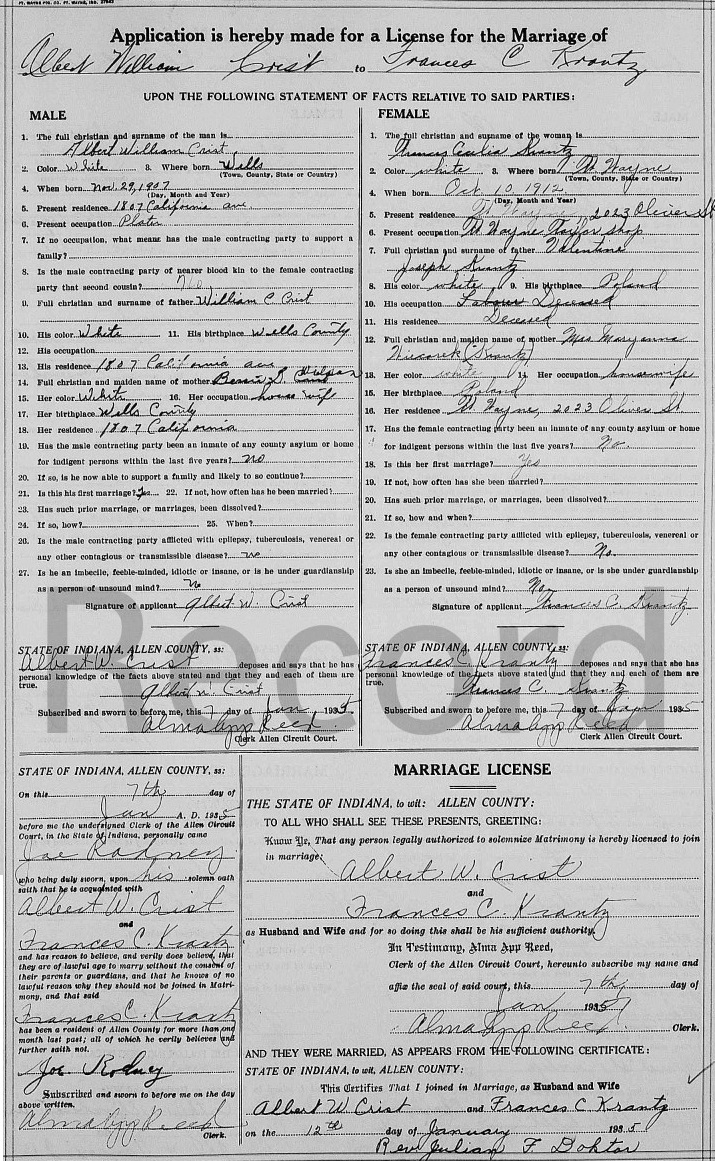 FT. WAYNE PTG. CO. FT. WAYNE, IND.
Application is hereby made for a License for the Marriage of
Albert William Crist to Frances C Krantz
UPON THE FOLLOWING STATEMENT OF FACTS RELATIVE TO SAID PARTIES:
MALE
1. The full christian and surname of the man is
Albert William Crist
2. Color White 3. Where born Wells
(Town, County, State or Country)
4. When born Nov. 29, 1907
(Day, Month and Year)
5. Present residence 1807 California ave
6. Present occupation Plater
7. If no occupation, what means has the male contracting party to support a
family?
8. Is the male contracting party of nearer blood kin to the female contracting
party that second cousin? No
9. Full christian and surname of father William C Crist
10. His color White 11. His birthplace Wells County
12. His occupation
13. His residence 1807 California ave
14. Full christian and maiden name of mother Bessie S.
15. Her color White 16. Her occupation house wife
17. Her birthplace Wells County
18. Her residence 1807 California
19. Has the male contracting party been an inmate of any county asylum or home
for indigent persons within the last five years? no
20. If so, is he now able to support a family and likely to so continue?
21. Is this his first marriage? yes 22. If not, how often has he been married?
23. Has such prior marriage, or marriages, been dissolved?
24. If so, how? 25. When?
26. Is the male contracting party afflicted with epilepsy, tuberculosis, venereal or
any other contagious or transmissible disease? no
27. Is he an imbecile, feeble-minded, idiotic or insane, or is he under guardianship
as a person of unsound mind? No
Signature of applicant Albert W. Crist
STATE OF INDIANA, ALLEN COUNTY, ss:
Albert W. Crist deposes and says that he has
personal knowledge of the facts above stated and that they and each of them are
true.
Albert W. Crist
Subscribed and sworn to before me, this 7 day of Jan 1935
Alma App Reed
Clerk Allen Circuit Court.
FEMALE
1. The full christian and surname of the woman is
Frances Cecilia Krantz
2. Color white 3. Where born Ft. Wayne
(Town, County, State or Country)
4. When born Oct 10 1912
(Day, Month and Year)
5. Present residence Ft Wayne, 2023 Oliver St
6. Present occupation Ft Wayne Tailor shop
7. Full christian and surname of father Valentine
Joseph Krantz
8. His color white 9. His birthplace Poland
10. His occupation Labour Deceased
11. His residence Deceased
12. Full christian and maiden name of mother Mrs Maryanna
(Krantz)
13. Her color white 14. Her occupation housewife
15. Her birthplace Poland
16. Her residence Ft Wayne, 2023 Oliver St
17. Has the female contracting party been an inmate of any county asylum or home
for indigent persons within the last five years? No.
18. Is this her first marriage? Yes
19. If not, how often has she been married?
20. Has such prior marriage, or marriages, been dissolved?
21. If so, how and when?
22. Is the female contracting party afflicted with epilepsy, tuberculosis, venereal or
any other contagious or transmissible disease? No.
23. Is she an imbecile, feeble-minded, idiotic or insane, or is she under guardianship
as a person of unsound mind? No
Signature of applicant Frances C. Krantz
STATE OF INDIANA, ALLEN COUNTY, ss:
Frances C. Krantz deposes and says that she has
personal knowledge of the facts above stated and that they and each of them are
true.
Frances C. Krantz
Subscribed and sworn to before me, this 7 day of Jan 1935
Alma App Reed
Clerk Allen Circuit Court.
Record
STATE OF INDIANA, ALLEN COUNTY, ss:
On this 7th day of
Jan A. D. 1935
before me the undersigned Clerk of the Allen Circuit
Court, in the State of Indiana, personally came
Joe Rodney
who being duly sworn, upon his solemn oath
saith that he is acquainted with
Albert W. Crist
and
Frances C. Krantz
and has reason to believe, and verily does believe, that
they are of lawful age to marry without the consent of
their parents or guardians, and that he knows of no
lawful reason why they should not be joined in Matri-
mony, and that said
Frances C. Krantz
has been a resident of Allen County for more than one
month last past; all of which he verily believes and
further saith not.
Joe Rodney
Subscribed and sworn to before me on the day
above written.
Alma App Reed
Clerk.
MARRIAGE LICENSE
THE STATE OF INDIANA, to wit: ALLEN COUNTY:
TO ALL WHO SHALL SEE THESE PRESENTS, GREETING:
Know Ye, That any person legally authorized to solemnize Matrimony is hereby licensed to join
in marriage:
Albert W. Crist
and
Frances C. Krantz
as Husband and Wife and for so doing this shall be his sufficient authority.
In Testimony, Alma App Reed,
Clerk of the Allen Circuit Court, hereunto subscribe my name and
affix the seal of said court, this 7th day of
Jan 1935
Alma App Reed Clerk.
AND THEY WERE MARRIED, AS APPEARS FROM THE FOLLOWING CERTIFICATE:
STATE OF INDIANA, to wit, ALLEN COUNTY:
This Certifies That I joined in Marriage, as Husband and Wife
Albert W Crist and Frances C Krantz
on the 12th day of January 1935
Rev. Julian F. Doktor